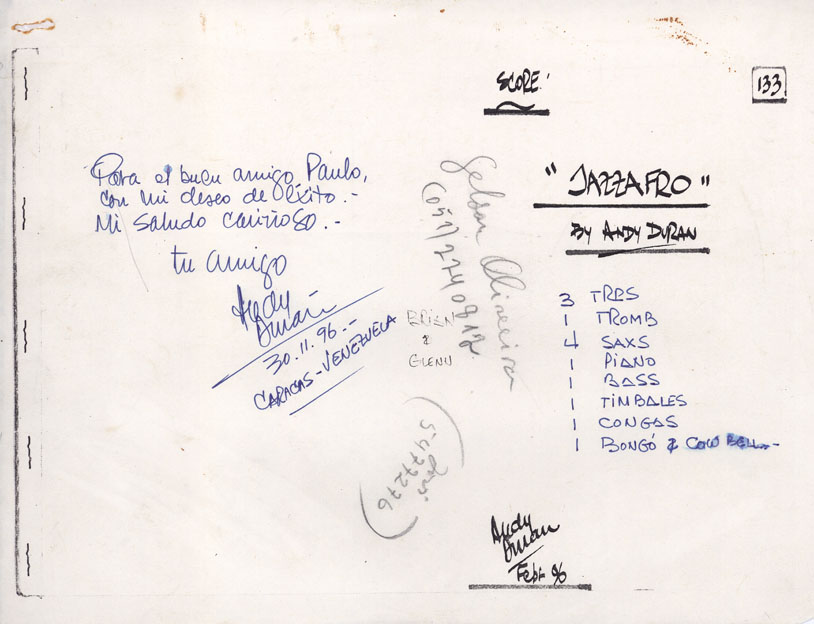 SCORE!
133
Para el buen amigo, Paulo,
con mi deseo de éxito.-
Mi saludo cariñoso.-
tu amigo
Andy
Duran
30.11.96.-
CARACAS-VENEZUELA
Gelson Oliveira
(051) 2240812
BRIAN
&
GLENN
5477276
"JAZZAFRO"
BY ANDY DURAN
3 TRPS
1 TROMB
4 SAXS
1 PIANO
1 BASS
1 TIMBALES
1 CONGAS
1 BONGÓ & COW BELL.-
Andy
Duran
Feb. 96